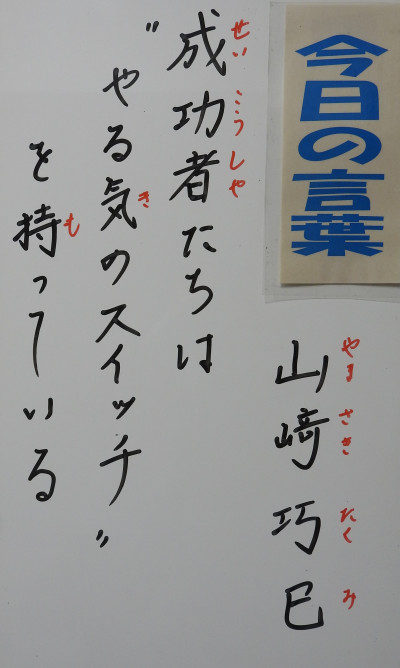 今日の言葉
山﨑巧巳
やまさきたくみ
成功者たちは
せいこうしゃ
"やる気のスイッチ"
き
を持っている
も